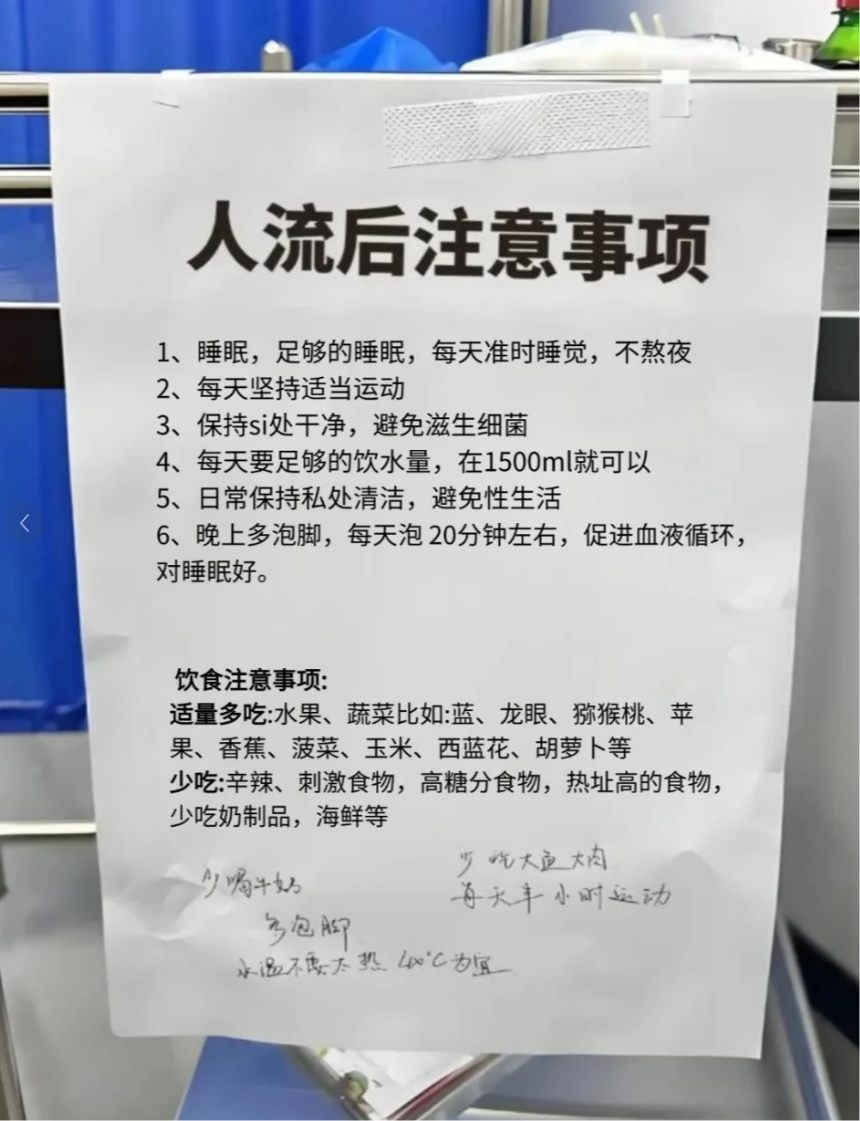 人流后注意事项
1、睡眠，足够的睡眠，每天准时睡觉，不熬夜
2、每天坚持适当运动
3、保持si处干净，避免滋生细菌
4、每天要足够的饮水量，在1500ml就可以
5、日常保持私处清洁，避免性生活
6、晚上多泡脚，每天泡 20分钟左右，促进血液循环，
对睡眠好。
饮食注意事项:
适量多吃:水果、蔬菜比如:蓝、龙眼、猕猴桃、苹
果、香蕉、菠菜、玉米、西蓝花、胡萝卜等
少吃:辛辣、刺激食物，高糖分食物，热址高的食物，
少吃奶制品，海鲜等
少喝牛奶
少吃大鱼大肉
每天半小时运动
多泡脚
水温不要太热 40°C为宜